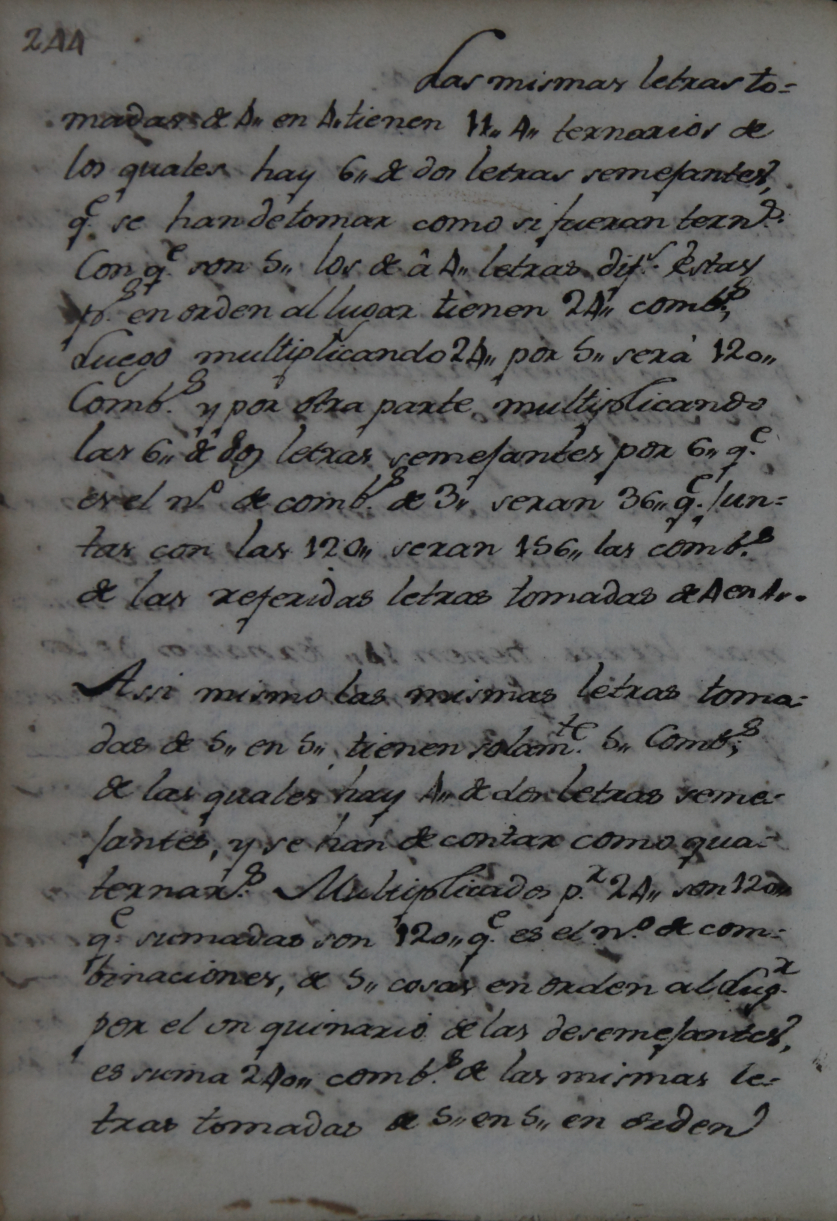 244
Las mismas letras to=
madas de 4,, en 4,, tienen 11,, 4,, ternarios de
los quales hay 6,, de dos letras semejantes,
q.e se han de tomar como si fueran tern.s
Con q.e son 5,, los de â 4,, letras dif.s Estas
p.s en orden al lugar tienen 24,, comb.s,
Luego multiplicando 24,, por 5,, será 120,,
Comb.s y por otra parte multiplicando
las 6,, de dos letras semejantes por 6,, q.e
es el n.o de comb.s de 3,, seran 36,, q.e jun=
tas con las 120,, seran 156,, las comb.s
de las referidas letras tomadas de 4 en 4,,.
Assi mismo las mismas letras toma=
das de 5,, en 5,, tienen solam.te 5,, Comb.s;
de las quales hay 4,, de dos letras seme=
jantes, y se han de contar como qua=
ternar.s Multiplicados p.r 24,, son 120,,
q.e sumadas son 120,, q.e es el n.o de com=
binaciones, de 5,, cosas en orden al Lug.r
por el un quinario de las desemejantes,
es suma 240,, comb.s de las mismas le=
tras tomadas de 5,, en 5,, en orden